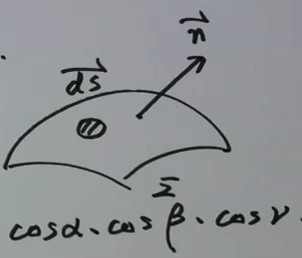 n⃗
ds⃗
Σ
cosα、cosβ、cosγ.